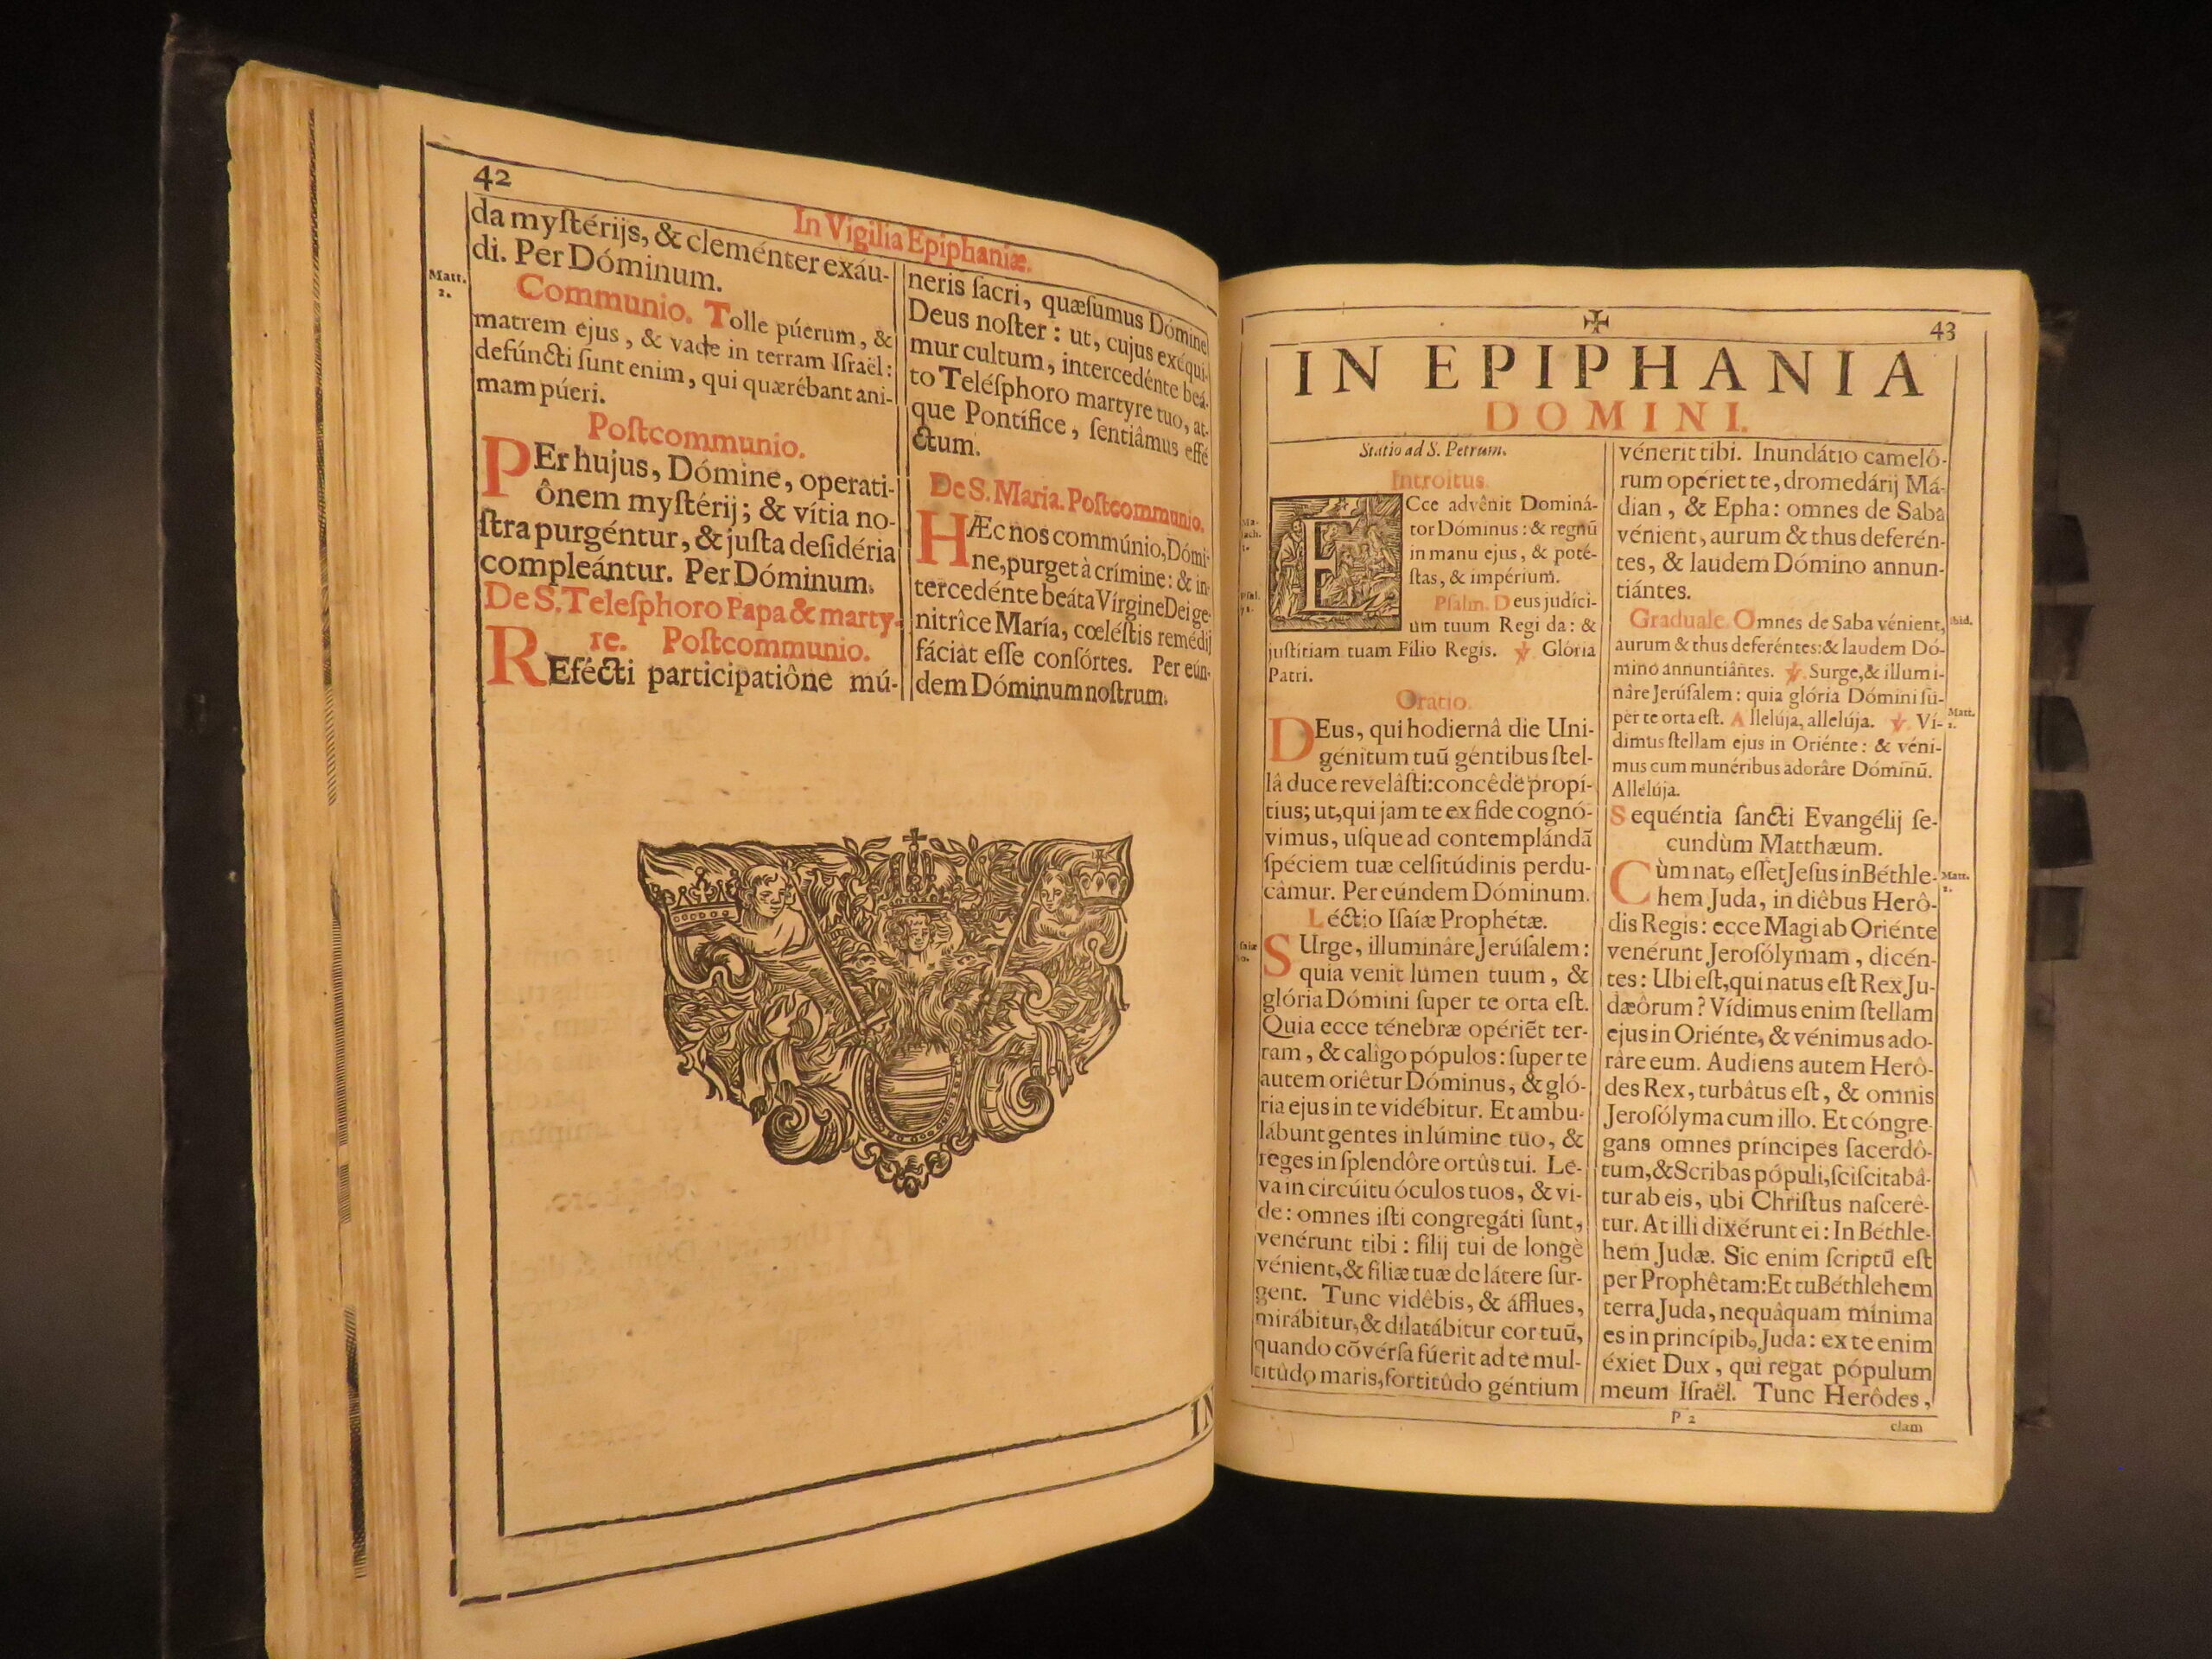 42
In Vigilia Epiphaniæ.
da myſtérijs, & cleménter exáu-
di. Per Dóminum.
Matt.
2.
Communio. Tolle púerum, &
matrem ejus, & vade in terram Iſraël:
defúncti ſunt enim, qui quærébant ani-
mam púeri.
Poſtcommunio.
PEr hujus, Dómine, operati-
ônem myſtérij; & vítia no-
ſtra purgéntur, & juſta deſidéria
compleántur. Per Dóminum.
De S. Teleſphoro Papa & marty-
re. Poſtcommunio.
REfécti participatiône mú-
neris ſacri, quæſumus Dómine
Deus noſter: ut, cujus exéqui-
mur cultum, intercedénte beá-
to Teléſphoro martyre tuo, at-
que Pontífice, ſentiâmus effé
ctum.
De S. Maria. Poſtcommunio.
HÆc nos commúnio, Dómi-
ne, purget à crímine: & in-
tercedénte beáta Vírgine Dei ge-
nitrîce María, cœléſtis remédij
fáciat eſſe conſórtes. Per eún-
dem Dóminum noſtrum.
IN
43
IN EPIPHANIA
DOMINI.
Statio ad S. Petrum.
Introitus.
Ma-
lach.
ECce advênit Dominá-
tor Dóminus: & regnū
in manu ejus, & poté-
ſtas, & impérium.
Pſal.
Pſalm. Deus judíci-
um tuum Regi da: &
juſtítiam tuam Fílio Regis. ℣. Glória
Patri.
Oratio.
DEus, qui hodiernâ die Uni-
génitum tuū géntibus ſtel-
lâ duce revelâſti: concêde propí-
tius; ut, qui jam te ex fide cognó-
vimus, uſque ad contemplándā
ſpéciem tuæ celſitúdinis perdu-
câmur. Per eúndem Dóminum.
Léctio Iſaíæ Prophétæ.
SUrge, illuminâre Jerúſalem:
quia venit lumen tuum, &
glória Dómini ſuper te orta eſt.
Quia ecce ténebræ opériēt ter-
ram, & calîgo pópulos: ſuper te
autem oriêtur Dóminus, & gló-
ria ejus in te vidébitur. Et ambu-
lábunt gentes in lúmine tuo, &
reges in ſplendôre ortûs tui. Le-
va in circúitu óculos tuos, & vi-
de: omnes iſti congregáti ſunt,
venérunt tibi: filij tui de longè
vénient, & filiæ tuæ de látere ſur-
gent. Tunc vidêbis, & áfflues,
mirábitur, & dilatábitur cor tuū,
quando cōvérſa fúerit ad te mul-
titùdo maris, fortitûdo géntium
vénerit tibi. Inundátio camelô-
rum opériet te, dromedárij Má-
dian, & Epha: omnes de Saba
vénient, aurum & thus deferén-
tes, & laudem Dómino annun-
tiántes.
Graduale. Omnes de Saba vénient,
ibid.
aurum & thus deferéntes: & laudem Dó-
mino annuntiântes. ℣. Surge, & illumi-
nâre Jerúſalem: quia glória Dómini ſu-
per te orta eſt. Allelúja, allelúja. ℣. Ví-
Matt.
2.
dimus ſtellam ejus in Oriénte: & véni-
mus cum munéribus adorâre Dóminū.
Allelúja.
Sequéntia ſancti Evangélij ſe-
cundùm Matthæum.
Cùm natꝯ eſſet Jeſus in Béthle-
Matt.
2.
hem Juda, in diêbus Herô-
dis Regis: ecce Magi ab Oriénte
venérunt Jeroſólymam, dicén-
tes: Ubi eſt, qui natus eſt Rex Ju-
dæôrum? Vídimus enim ſtellam
ejus in Oriénte, & vénimus ado-
râre eum. Audiens autem Herô-
des Rex, turbâtus eſt, & omnis
Jeroſólyma cum illo. Et cóngre-
gans omnes príncipes ſacerdô-
tum, & Scribas pópuli, ſciſcitabâ-
tur ab eis, ubi Chriſtus naſcerê-
tur. At illi dixérunt ei: In Béthle-
hem Judæ. Sic enim ſcriptū eſt
per Prophêtam: Et tu Béthlehem
terra Juda, nequâquam mínima
es in princípibꝯ Juda: ex te enim
éxiet Dux, qui regat pópulum
meum Iſraël. Tunc Herôdes,
P 2
clam